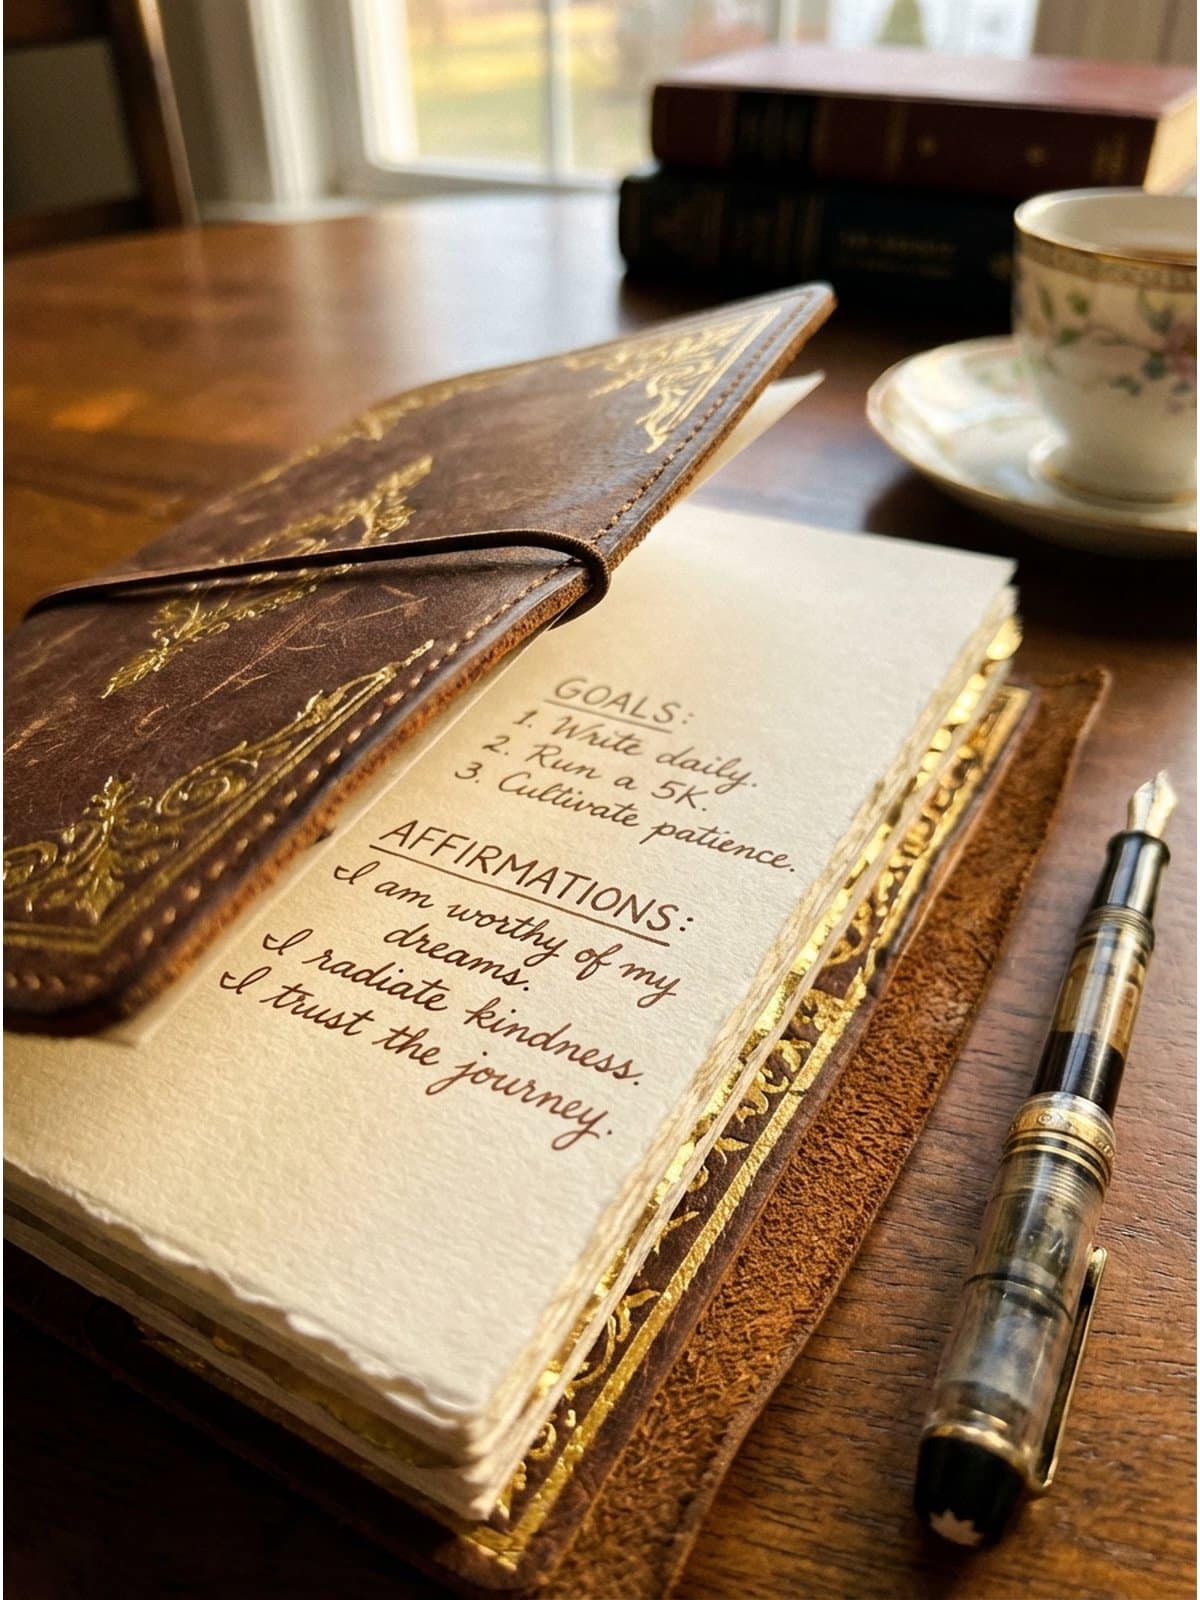 GOALS:
1. Write daily.
2. Run a 5K.
3. Cultivate patience.
AFFIRMATIONS:
I am worthy of my
dreams.
I radiate kindness.
I trust the journey.